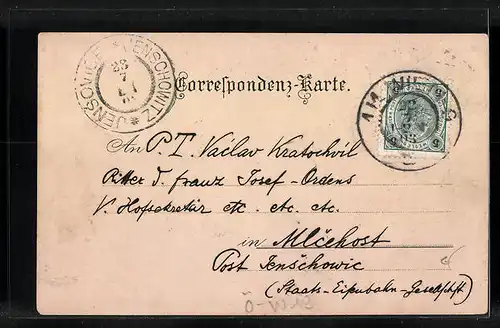 JENSCHOWITZ
* JENŠOVICE *
23
7
Correspondenz-Karte.
An P. T. Vaclav Kratochvíl
Ritter d. Franz Josef-Ordens
k. Hofsekretär etc. etc. etc.
in Mlčehost
Post Jenschowic
(Staats-Eisenbahn-Gesellschft)